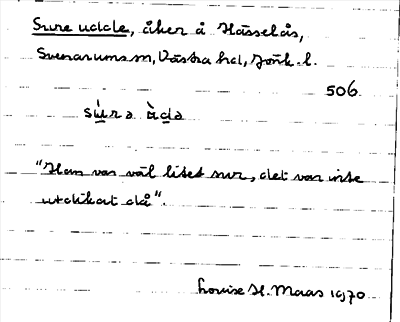 Sure udde, åker å Hässelås,
Svenarums sn, Västra hd, Jönk. l.
506
su̱rə ùdə
"Han var väl litet sur, det var inte
utdikat då".
Louise H. Maas 1970